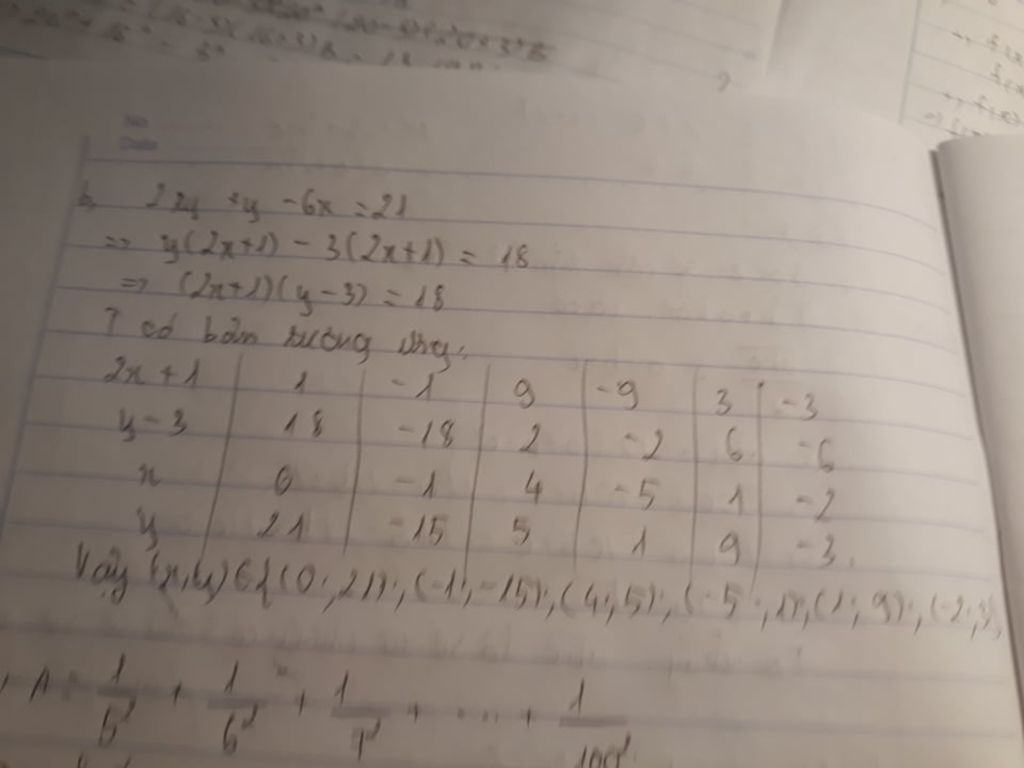 No
Date
b, 2xy + y - 6x = 21
=> y(2x+1) - 3(2x+1) = 18
=> (2x+1)(y-3) = 18
Ta có bảng tương ứng:
2x+1 | 1 | -1 | 9 | -9 | 3 | -3
y-3 | 18 | -18 | 2 | -2 | 6 | -6
x | 0 | -1 | 4 | -5 | 1 | -2
y | 21 | -15 | 5 | 1 | 9 | -3
Vậy (x,y) ∈ {(0; 21); (-1; -15); (4; 5); (-5; 1); (1; 9); (-2; 3)
A = 1/5² + 1/6² + 1/7² + .... + 1/100²